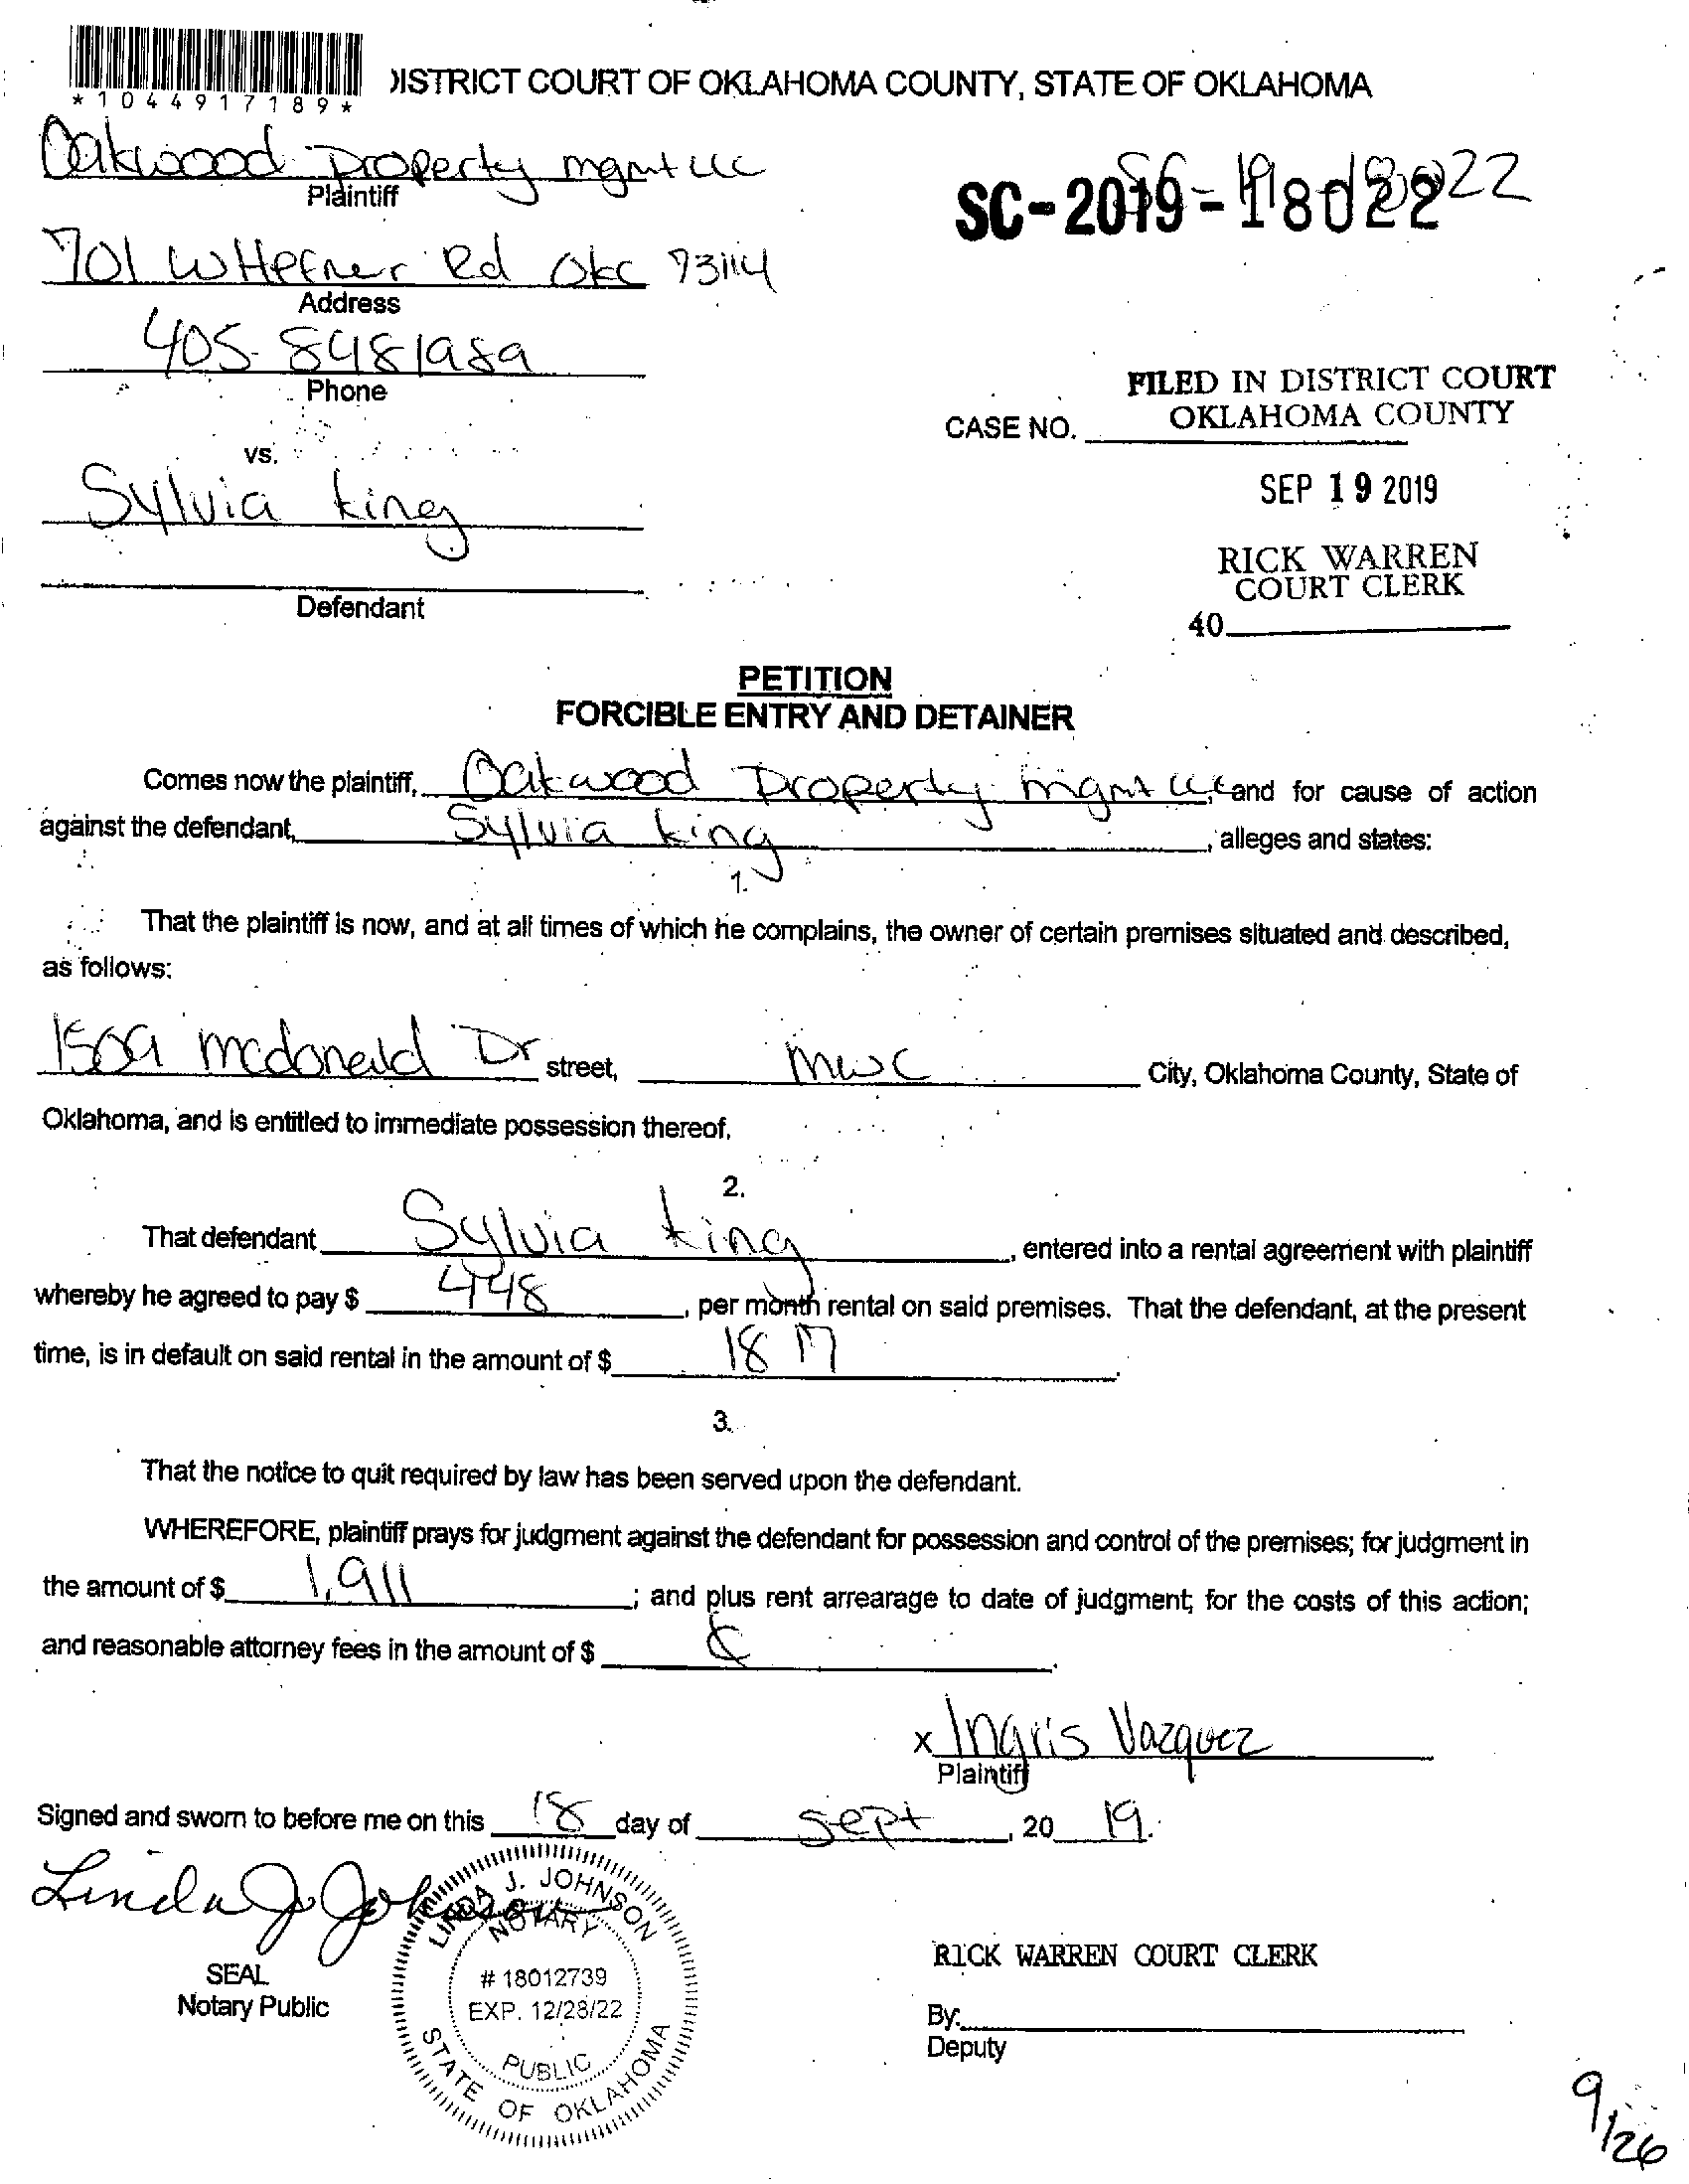 *1044917189*
DISTRICT COURT OF OKLAHOMA COUNTY, STATE OF OKLAHOMA
Oakwood Property mgmt LLC
Plaintiff
SC-19-18022
SC-2019-18022
701 W Hefner Rd OKC 73114
Address
405-848 1989
Phone
FILED IN DISTRICT COURT
OKLAHOMA COUNTY
CASE NO.
vs.
Sylvia King
SEP 19 2019
RICK WARREN
COURT CLERK
Defendant
40
PETITION
FORCIBLE ENTRY AND DETAINER
Comes now the plaintiff, Oakwood Property mgmt LLC, and for cause of action
against the defendant, Sylvia King, alleges and states:
1.
That the plaintiff is now, and at all times of which he complains, the owner of certain premises situated and described,
as follows:
1509 mcdonald Dr street, MWC City, Oklahoma County, State of
Oklahoma, and is entitled to immediate possession thereof.
2.
That defendant Sylvia King, entered into a rental agreement with plaintiff
whereby he agreed to pay $ 448, per month rental on said premises. That the defendant, at the present
time, is in default on said rental in the amount of $ 1817.
3.
That the notice to quit required by law has been served upon the defendant.
WHEREFORE, plaintiff prays for judgment against the defendant for possession and control of the premises; for judgment in
the amount of $ 1,911; and plus rent arrearage to date of judgment; for the costs of this action;
and reasonable attorney fees in the amount of $
x Ingris Vazquez
Plaintiff
Signed and sworn to before me on this 18 day of Sept, 20 19.
Linda J Johnson
LINDA J. JOHNSON
NOTARY
# 18012739
EXP. 12/28/22
PUBLIC
STATE OF OKLAHOMA
SEAL
Notary Public
RICK WARREN COURT CLERK
By:
Deputy
9/26